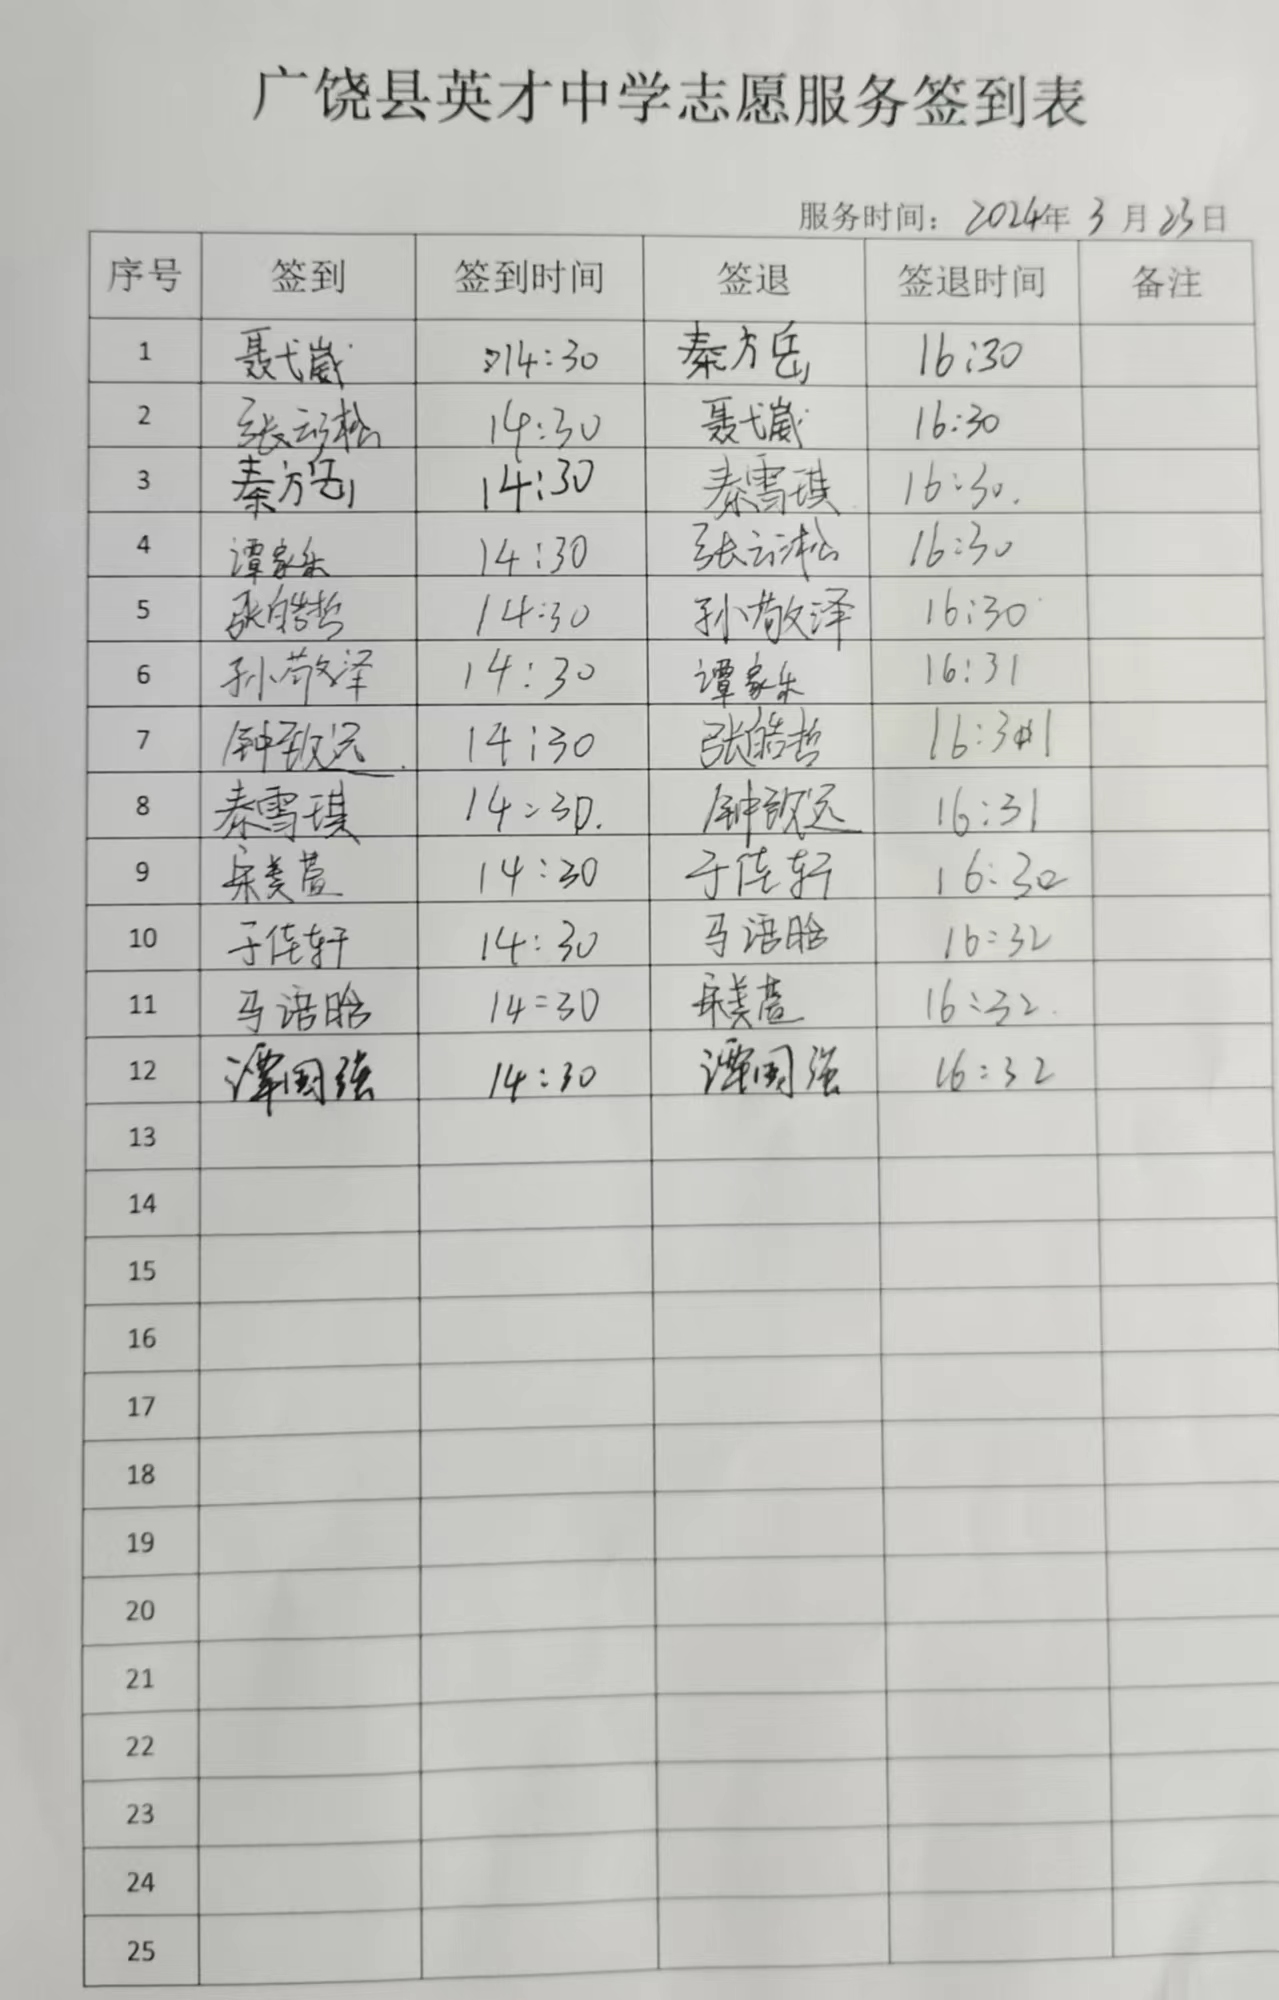 广饶县英才中学志愿服务签到表
服务时间：2024年3月23日
序号 签到 签到时间 签退 签退时间 备注
1 聂弋崴 14:30 秦方岳 16:30
2 张云淞 14:30 聂弋崴 16:30
3 秦方岳 14:30 秦雪琪 16:30.
4 谭家乐 14:30 张云淞 16:30
5 张皓哲 14:30 孙敬泽 16:30
6 孙敬泽 14:30 谭家乐 16:31
7 钟致远 14:30 张皓哲 16:31
8 秦雪琪 14:30. 钟致远 16:31
9 14:30 于佳轩 16:30
10 于佳轩 14:30 马语晗 16:32
11 马语晗 14:30 16:32.
12 谭国强 14:30 谭国强 16:32
13
14
15
16
17
18
19
20
21
22
23
24
25